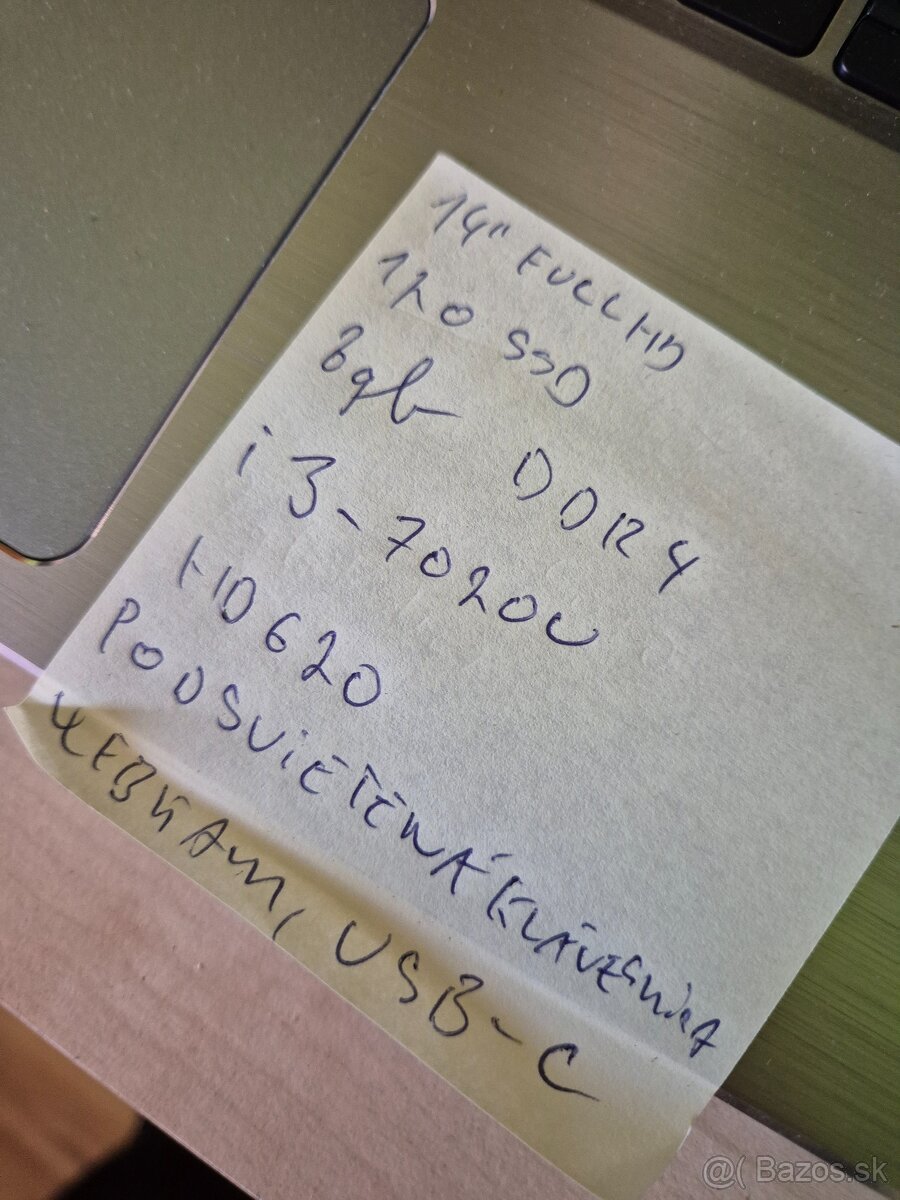 14" FULL HD
120 SSD
8gb DDR4
i3-7020U
HD620
PODSVIETENÁ KLÁVESNICA
WEBKAM, USB-C
@( Bazos.sk